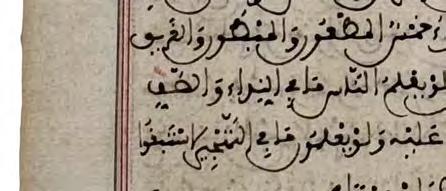 خمسة المطعون والمبطون والغريق
لو يعلم الناس ما في النداء والصف
عليه ولو يعلمون ما في التهجير لاستبقوا